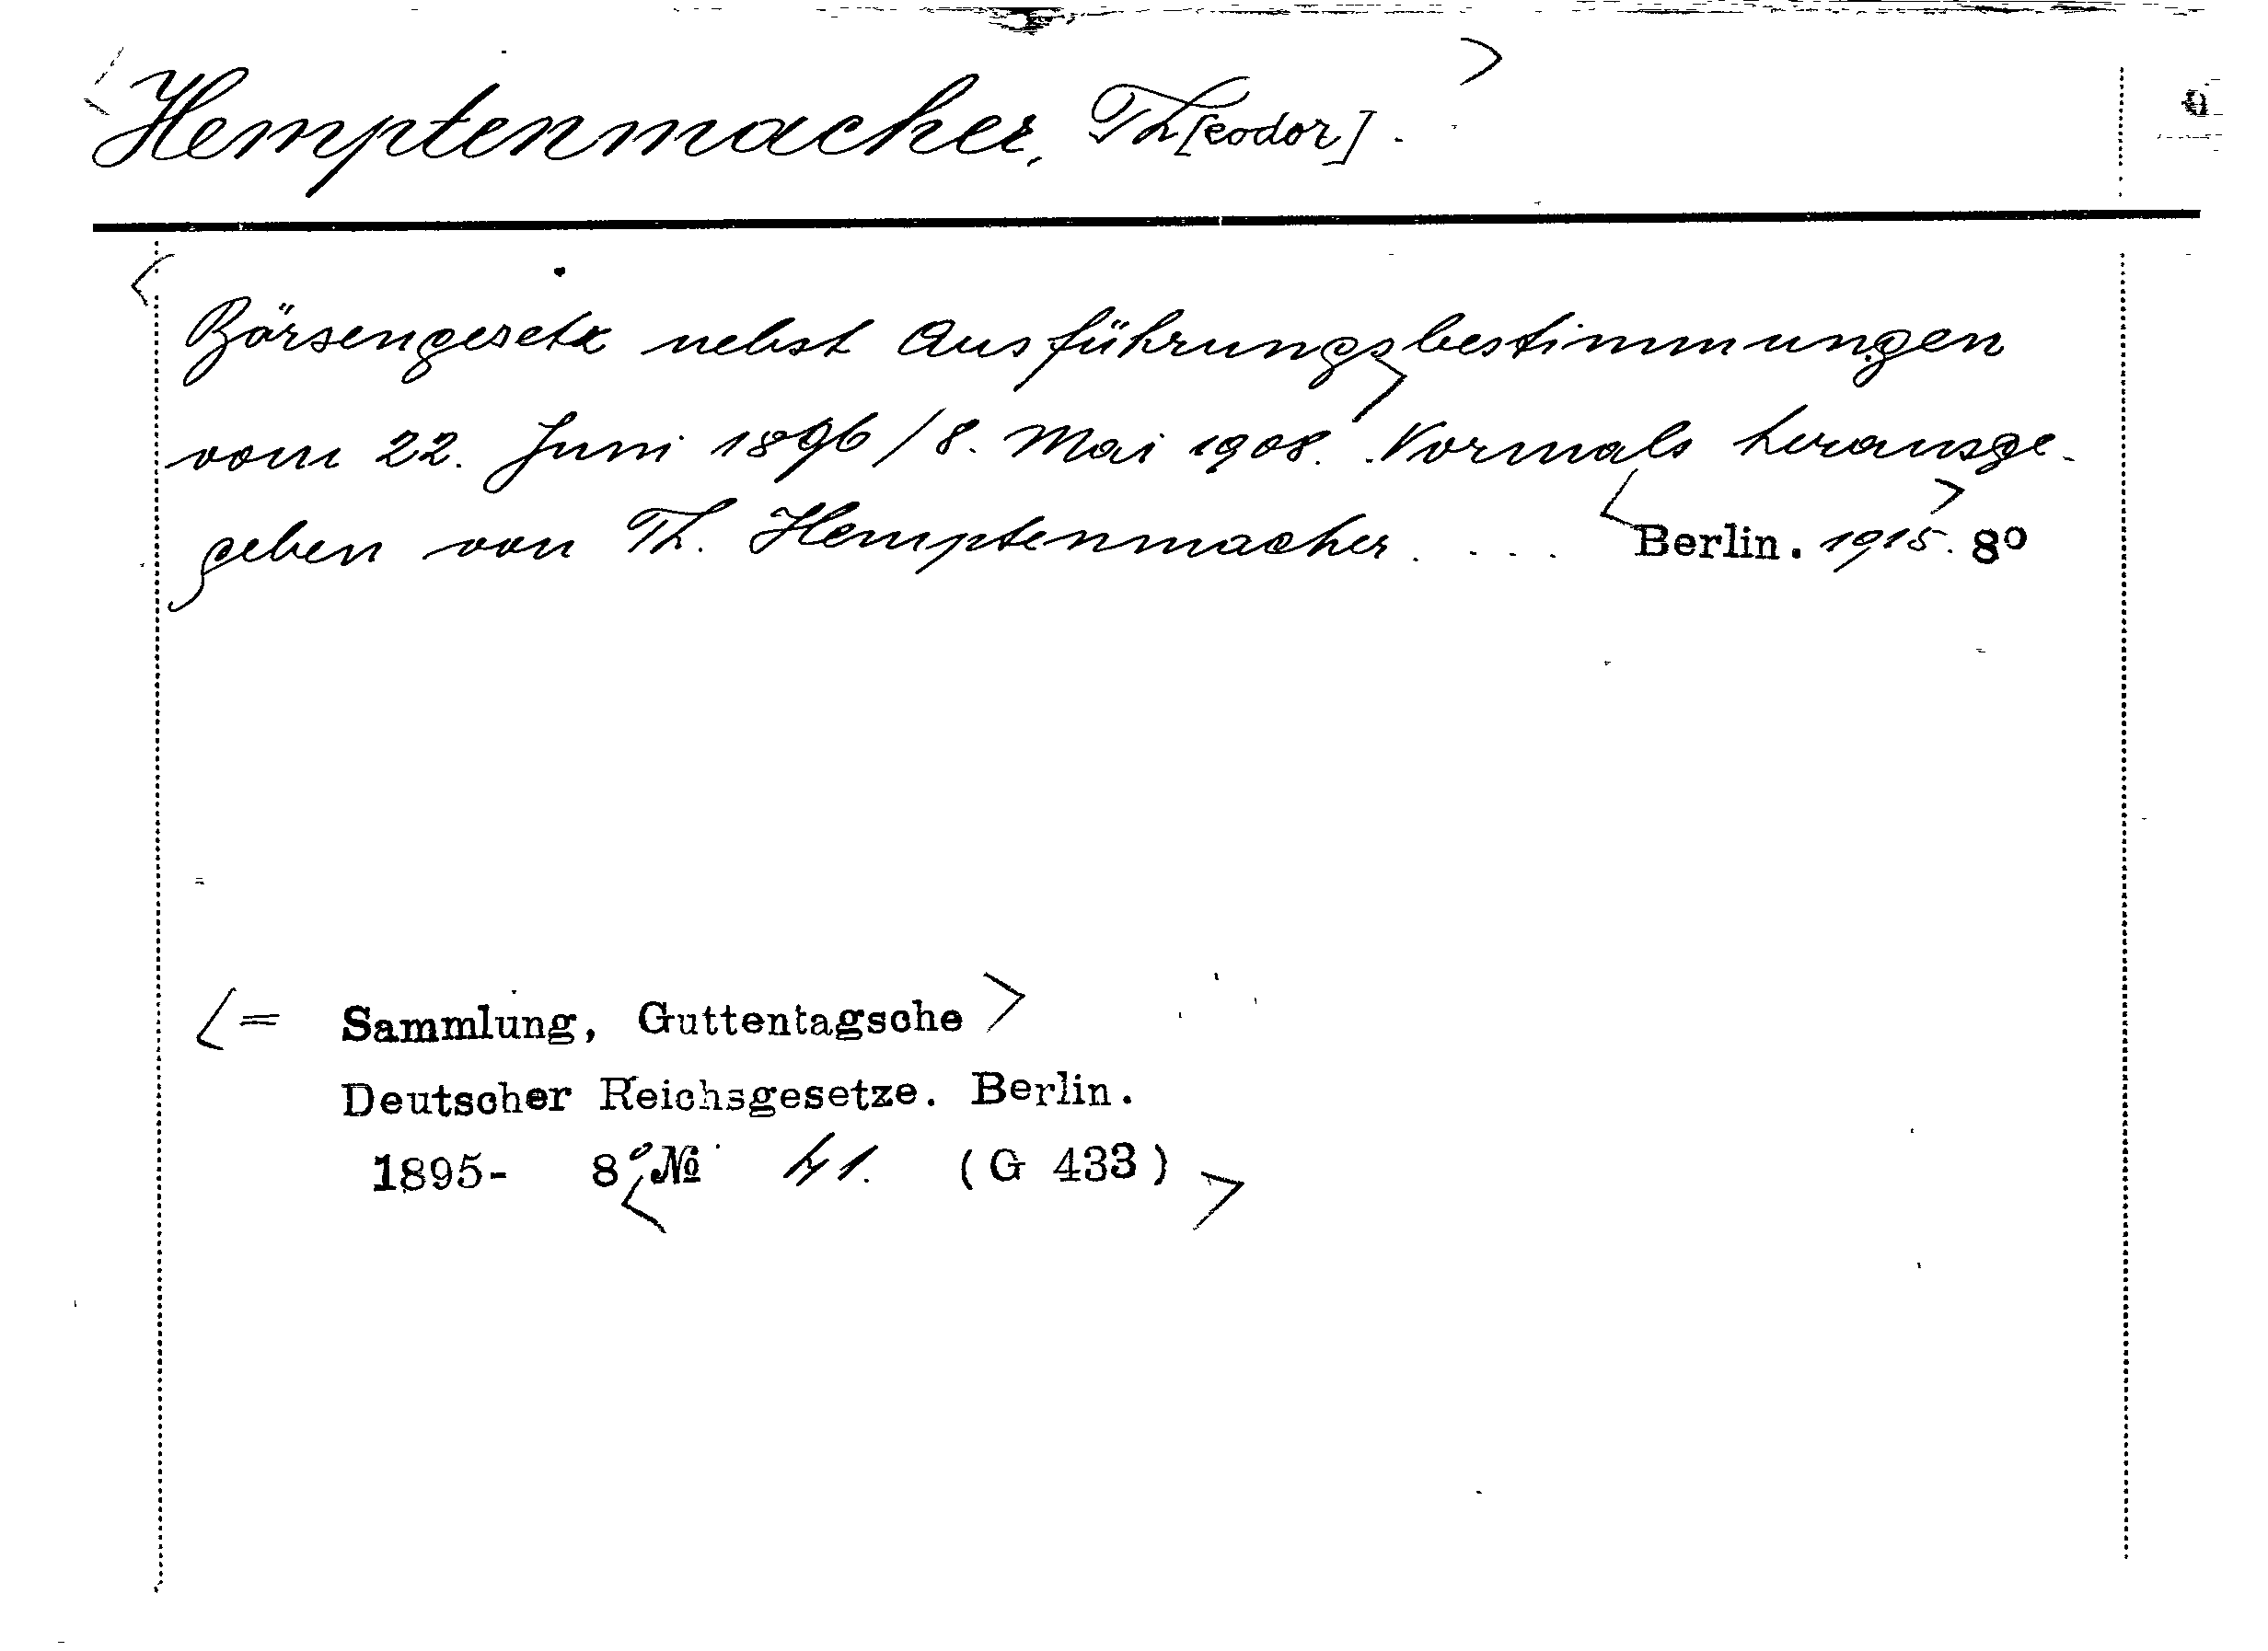 Hemptenmacher, Th[eodor].
Börsengesetz nebst Ausführungsbestimmungen
vom 22. Juni 1896/8. Mai 1908. Vormals herausge-
geben von Th. Hemptenmacher .... Berlin. 1915. 8º
= Sammlung, Guttentagsche
Deutscher Reichsgesetze. Berlin.
1895- 8º № 41. (G 433)